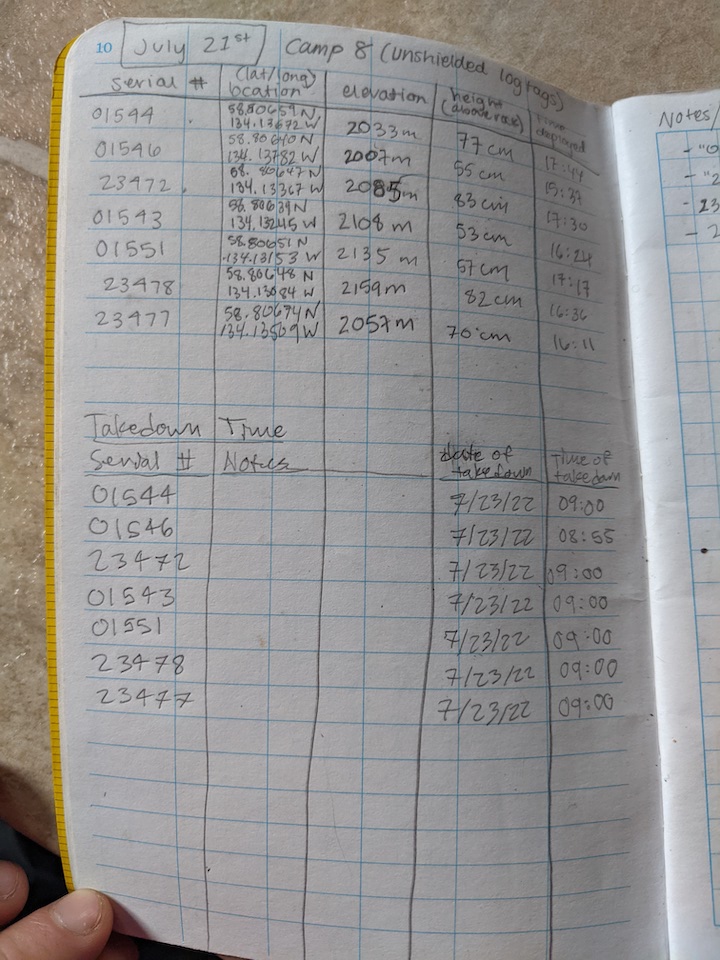 10 July 21st Camp 8 (unshielded log tags)
Serial # (lat/long) location elevation height (above rock) time deployed
01544 58.80659N 134.13672W 2033m 77cm 17:44
01546 58.80640N 134.13782W 2007m 55cm 15:37
23472 58.80647N 134.13367W 2085m 83cm 17:30
01543 58.80639N 134.13245W 2108m 53cm 16:24
01551 58.80651N 134.13153W 2135m 57cm 17:17
23478 58.80648N 134.13084W 2159m 82cm 16:36
23477 58.80674N 134.13509W 2057m 70cm 16:11
Takedown Time
Serial # Notes date of takedown Time of takedown
01544 7/23/22 09:00
01546 7/23/22 08:55
23472 7/23/22 09:00
01543 7/23/22 09:00
01551 7/23/22 09:00
23478 7/23/22 09:00
23477 7/23/22 09:00
Notes/